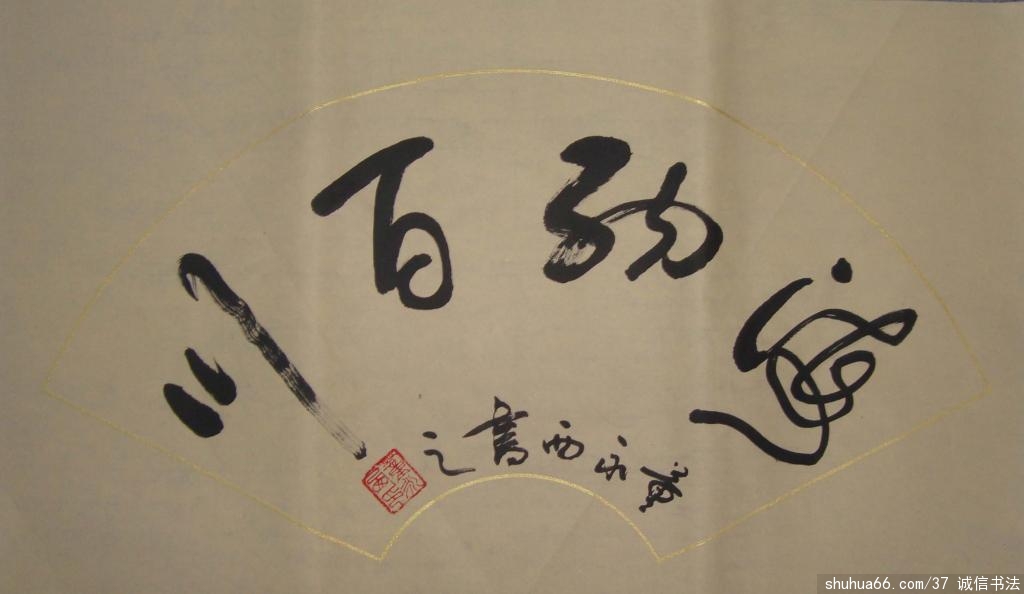 纳百川
黄永西書之
shuhua66.com/37 诚信书法